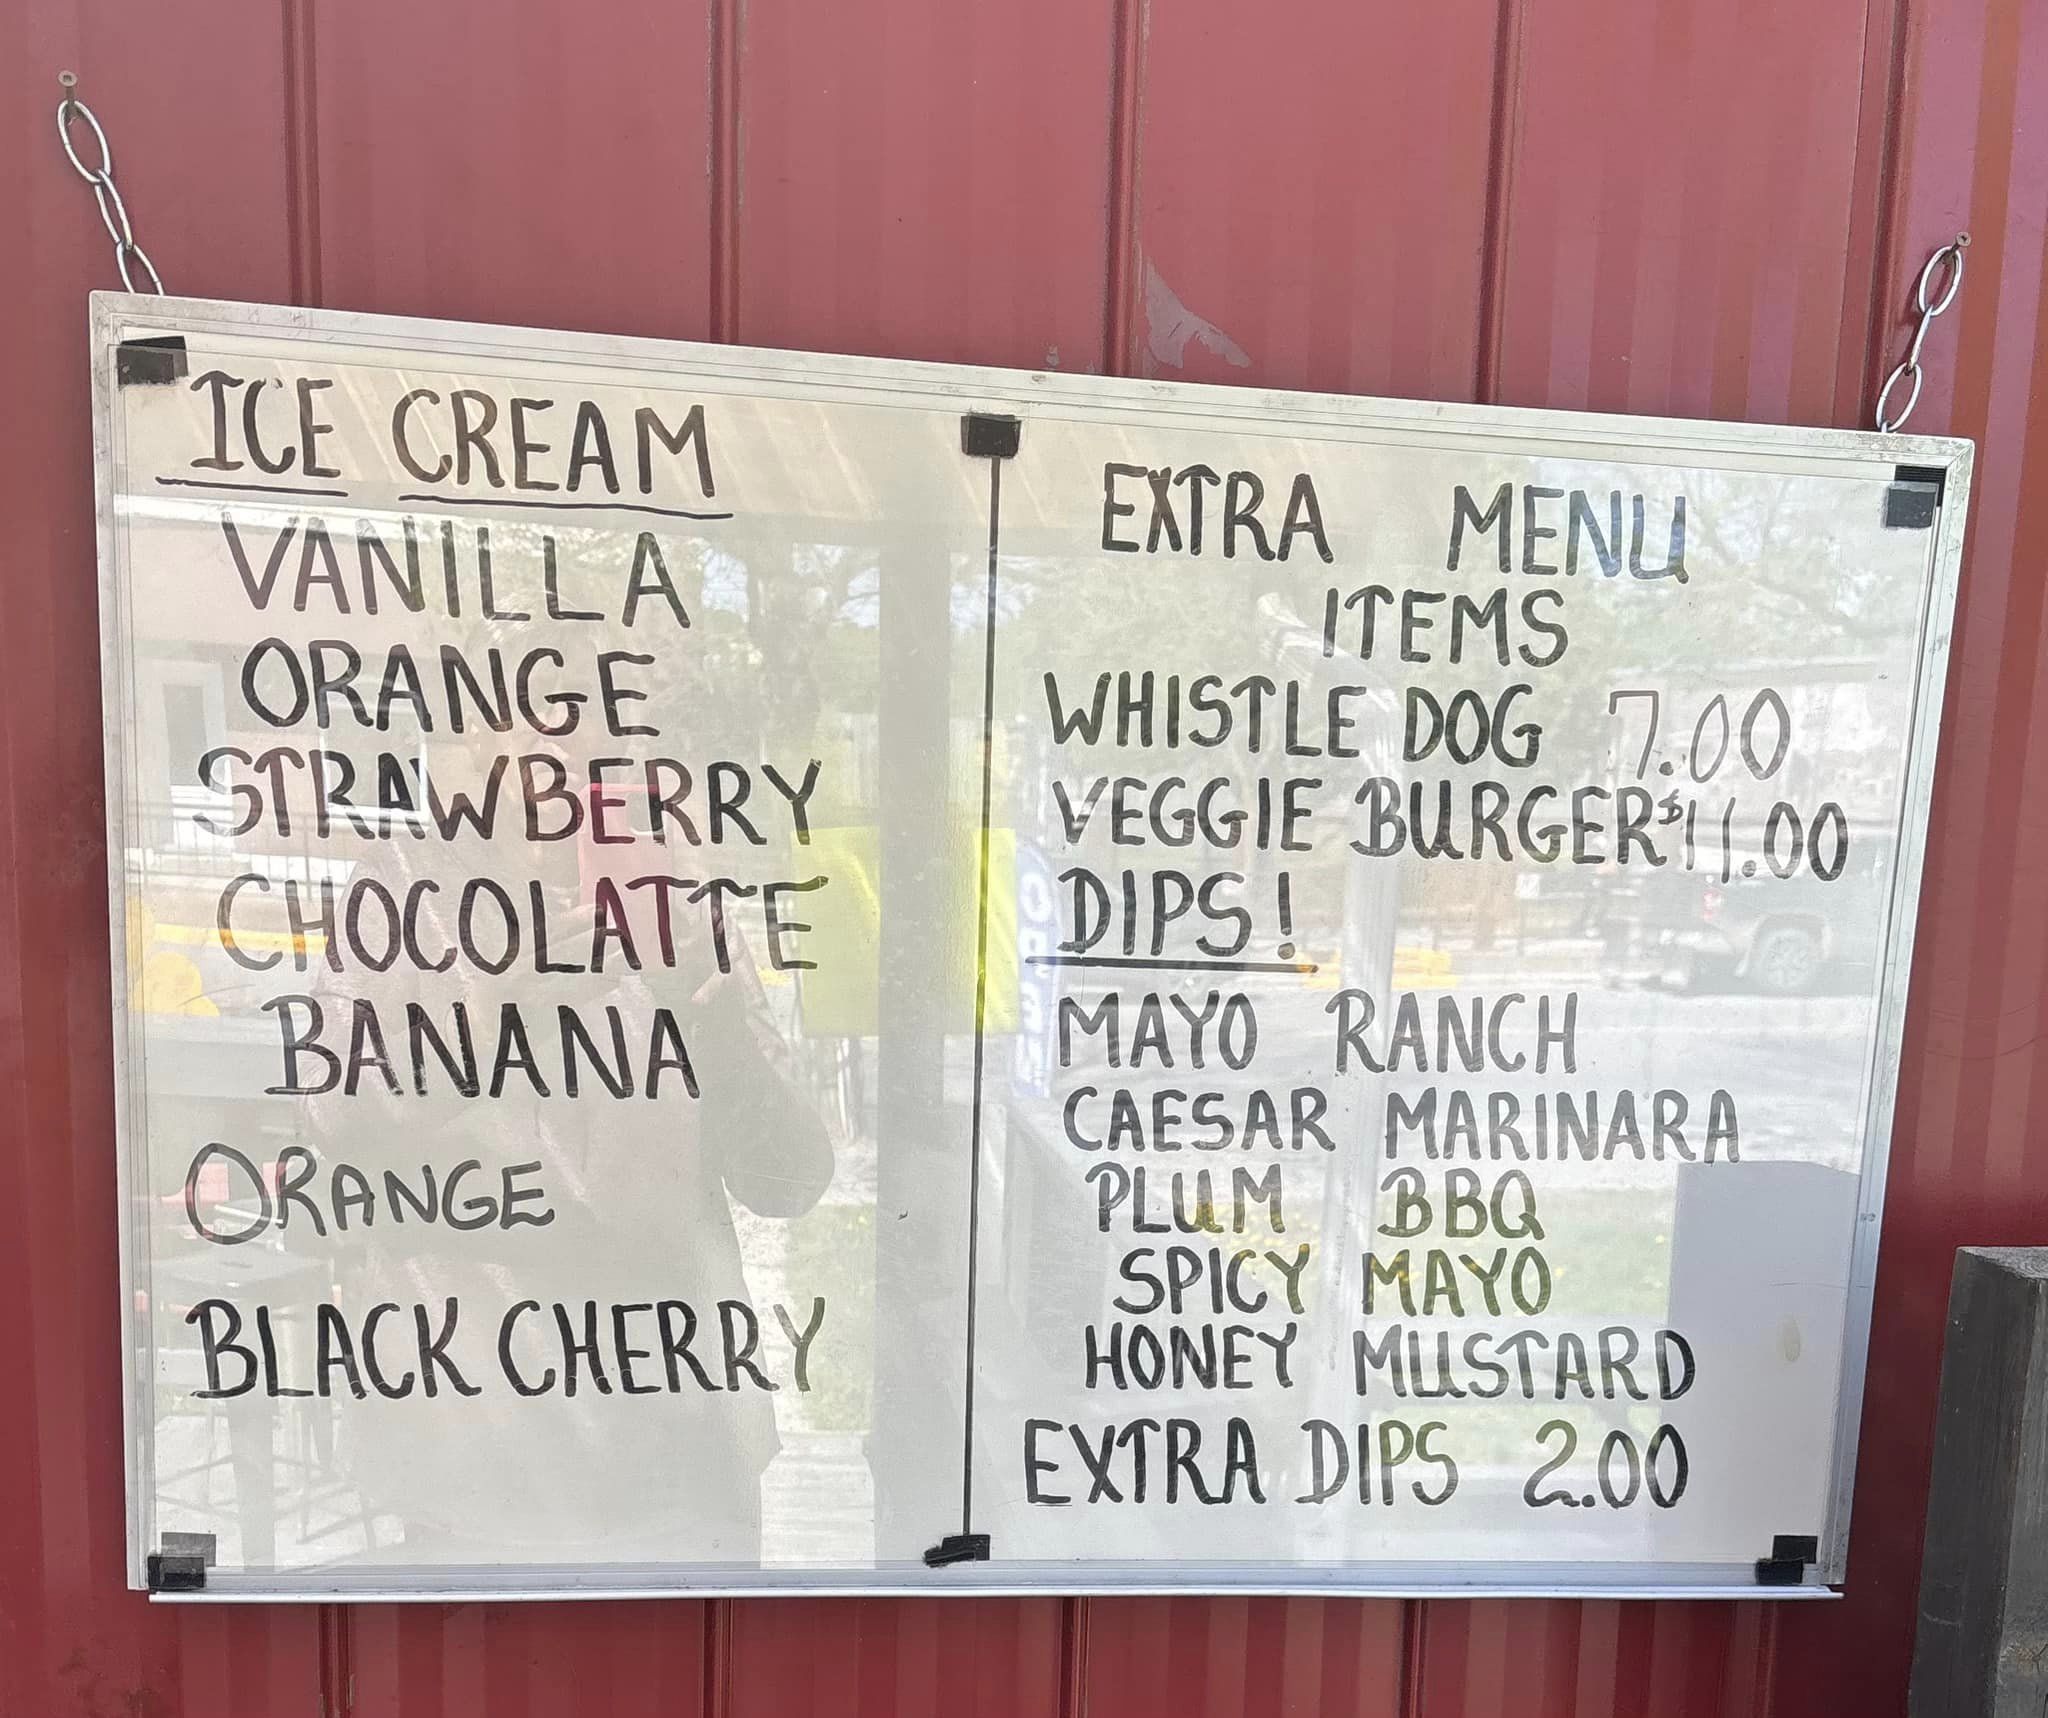 ICE CREAM
VANILLA
ORANGE
STRAWBERRY
CHOCOLATTE
BANANA
ORANGE
BLACK CHERRY
EXTRA MENU
ITEMS
WHISTLE DOG 7.00
VEGGIE BURGER $11.00
DIPS!
MAYO RANCH
CAESAR MARINARA
PLUM BBQ
SPICY MAYO
HONEY MUSTARD
EXTRA DIPS 2.00